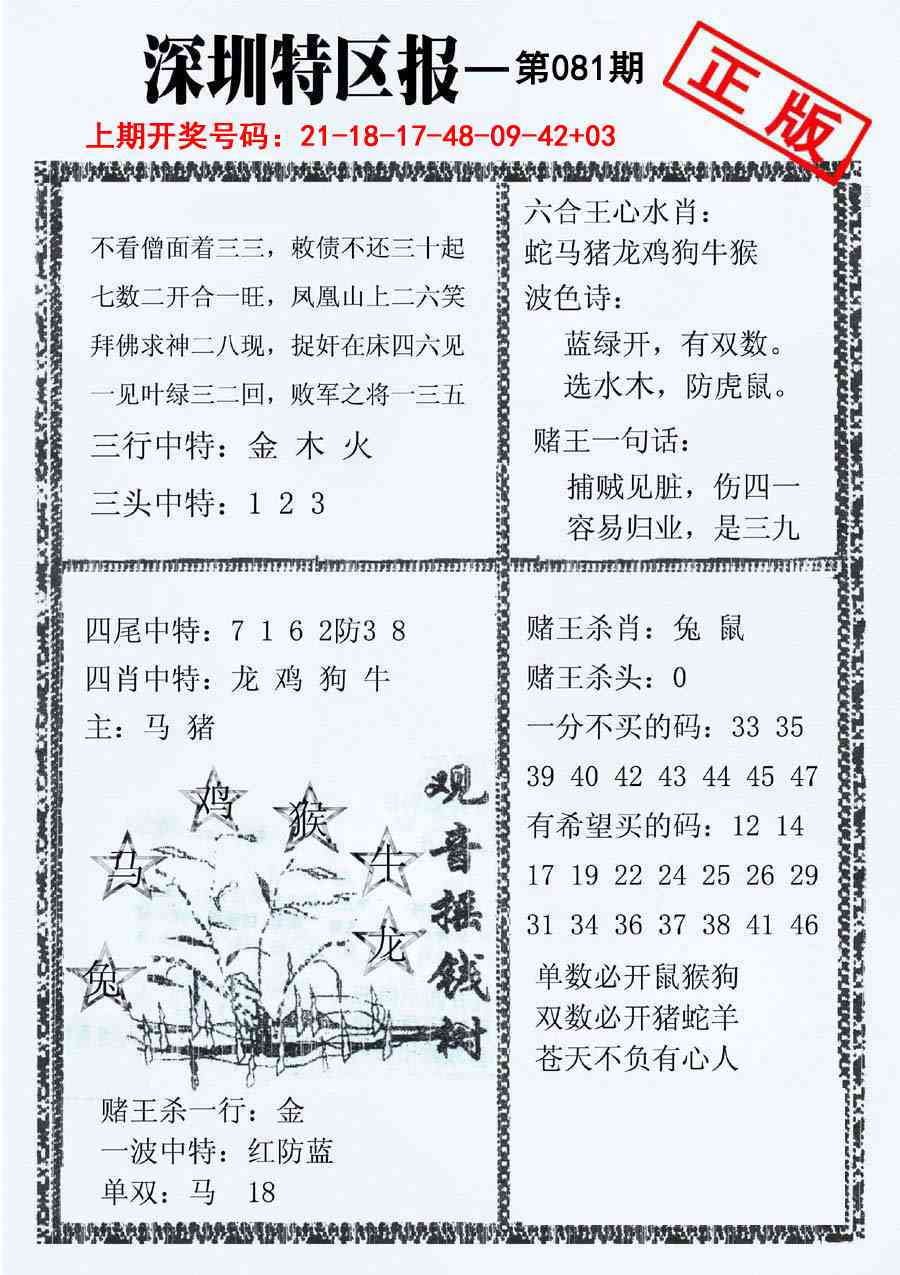 深圳特区报—第081期
正版
上期开奖号码：21-18-17-48-09-42+03
不看僧面着三三，敕债不还三十起
七数二开合一旺，凤凰山上二六笑
拜佛求神二八现，捉奸在床四六见
一见叶绿三二回，败军之将一三五
三行中特：金 木 火
三头中特：1 2 3
六合王心水肖：
蛇马猪龙鸡狗牛猴
波色诗：
蓝绿开，有双数。
选水木，防虎鼠。
赌王一句话：
捕贼见脏，伤四一
容易归业，是三九
四尾中特：7 1 6 2防3 8
四肖中特：龙 鸡 狗 牛
主：马 猪
鸡
猴
马
牛
龙
兔
观音摇钱树
赌王杀一行：金
一波中特：红防蓝
单双：马 18
赌王杀肖：兔 鼠
赌王杀头：0
一分不买的码：33 35
39 40 42 43 44 45 47
有希望买的码：12 14
17 19 22 24 25 26 29
31 34 36 37 38 41 46
单数必开鼠猴狗
双数必开猪蛇羊
苍天不负有心人